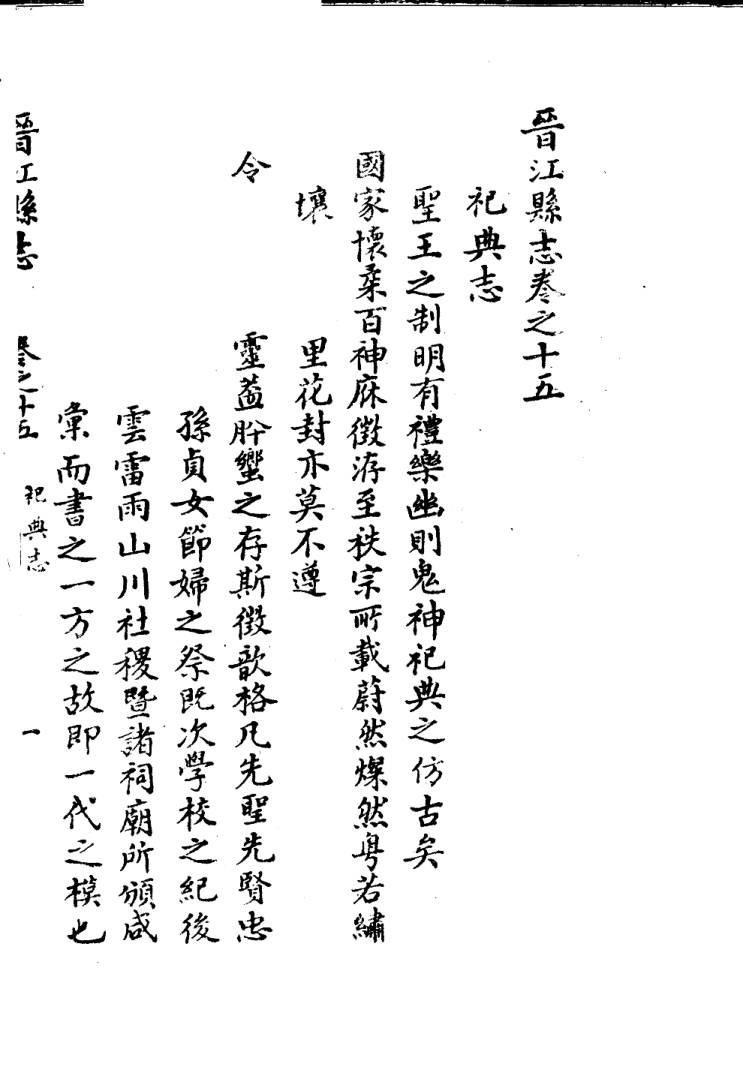 晉江縣志卷之十五
祀典志
聖王之制明有禮樂幽則鬼神祀典之仿古矣
國家懷柔百神庥徵洊至秩宗所載蔚然燦然粤若繡
壤 里花封亦莫不遵
令 靈葢肸蠁之存斯徵歆格凡先聖先賢忠
孫貞女節婦之祭既次學校之紀後
雲雷雨山川社稷暨諸祠廟所頒咸
彙而書之一方之故即一代之模也
晉江縣志 卷之十五 祀典志 一